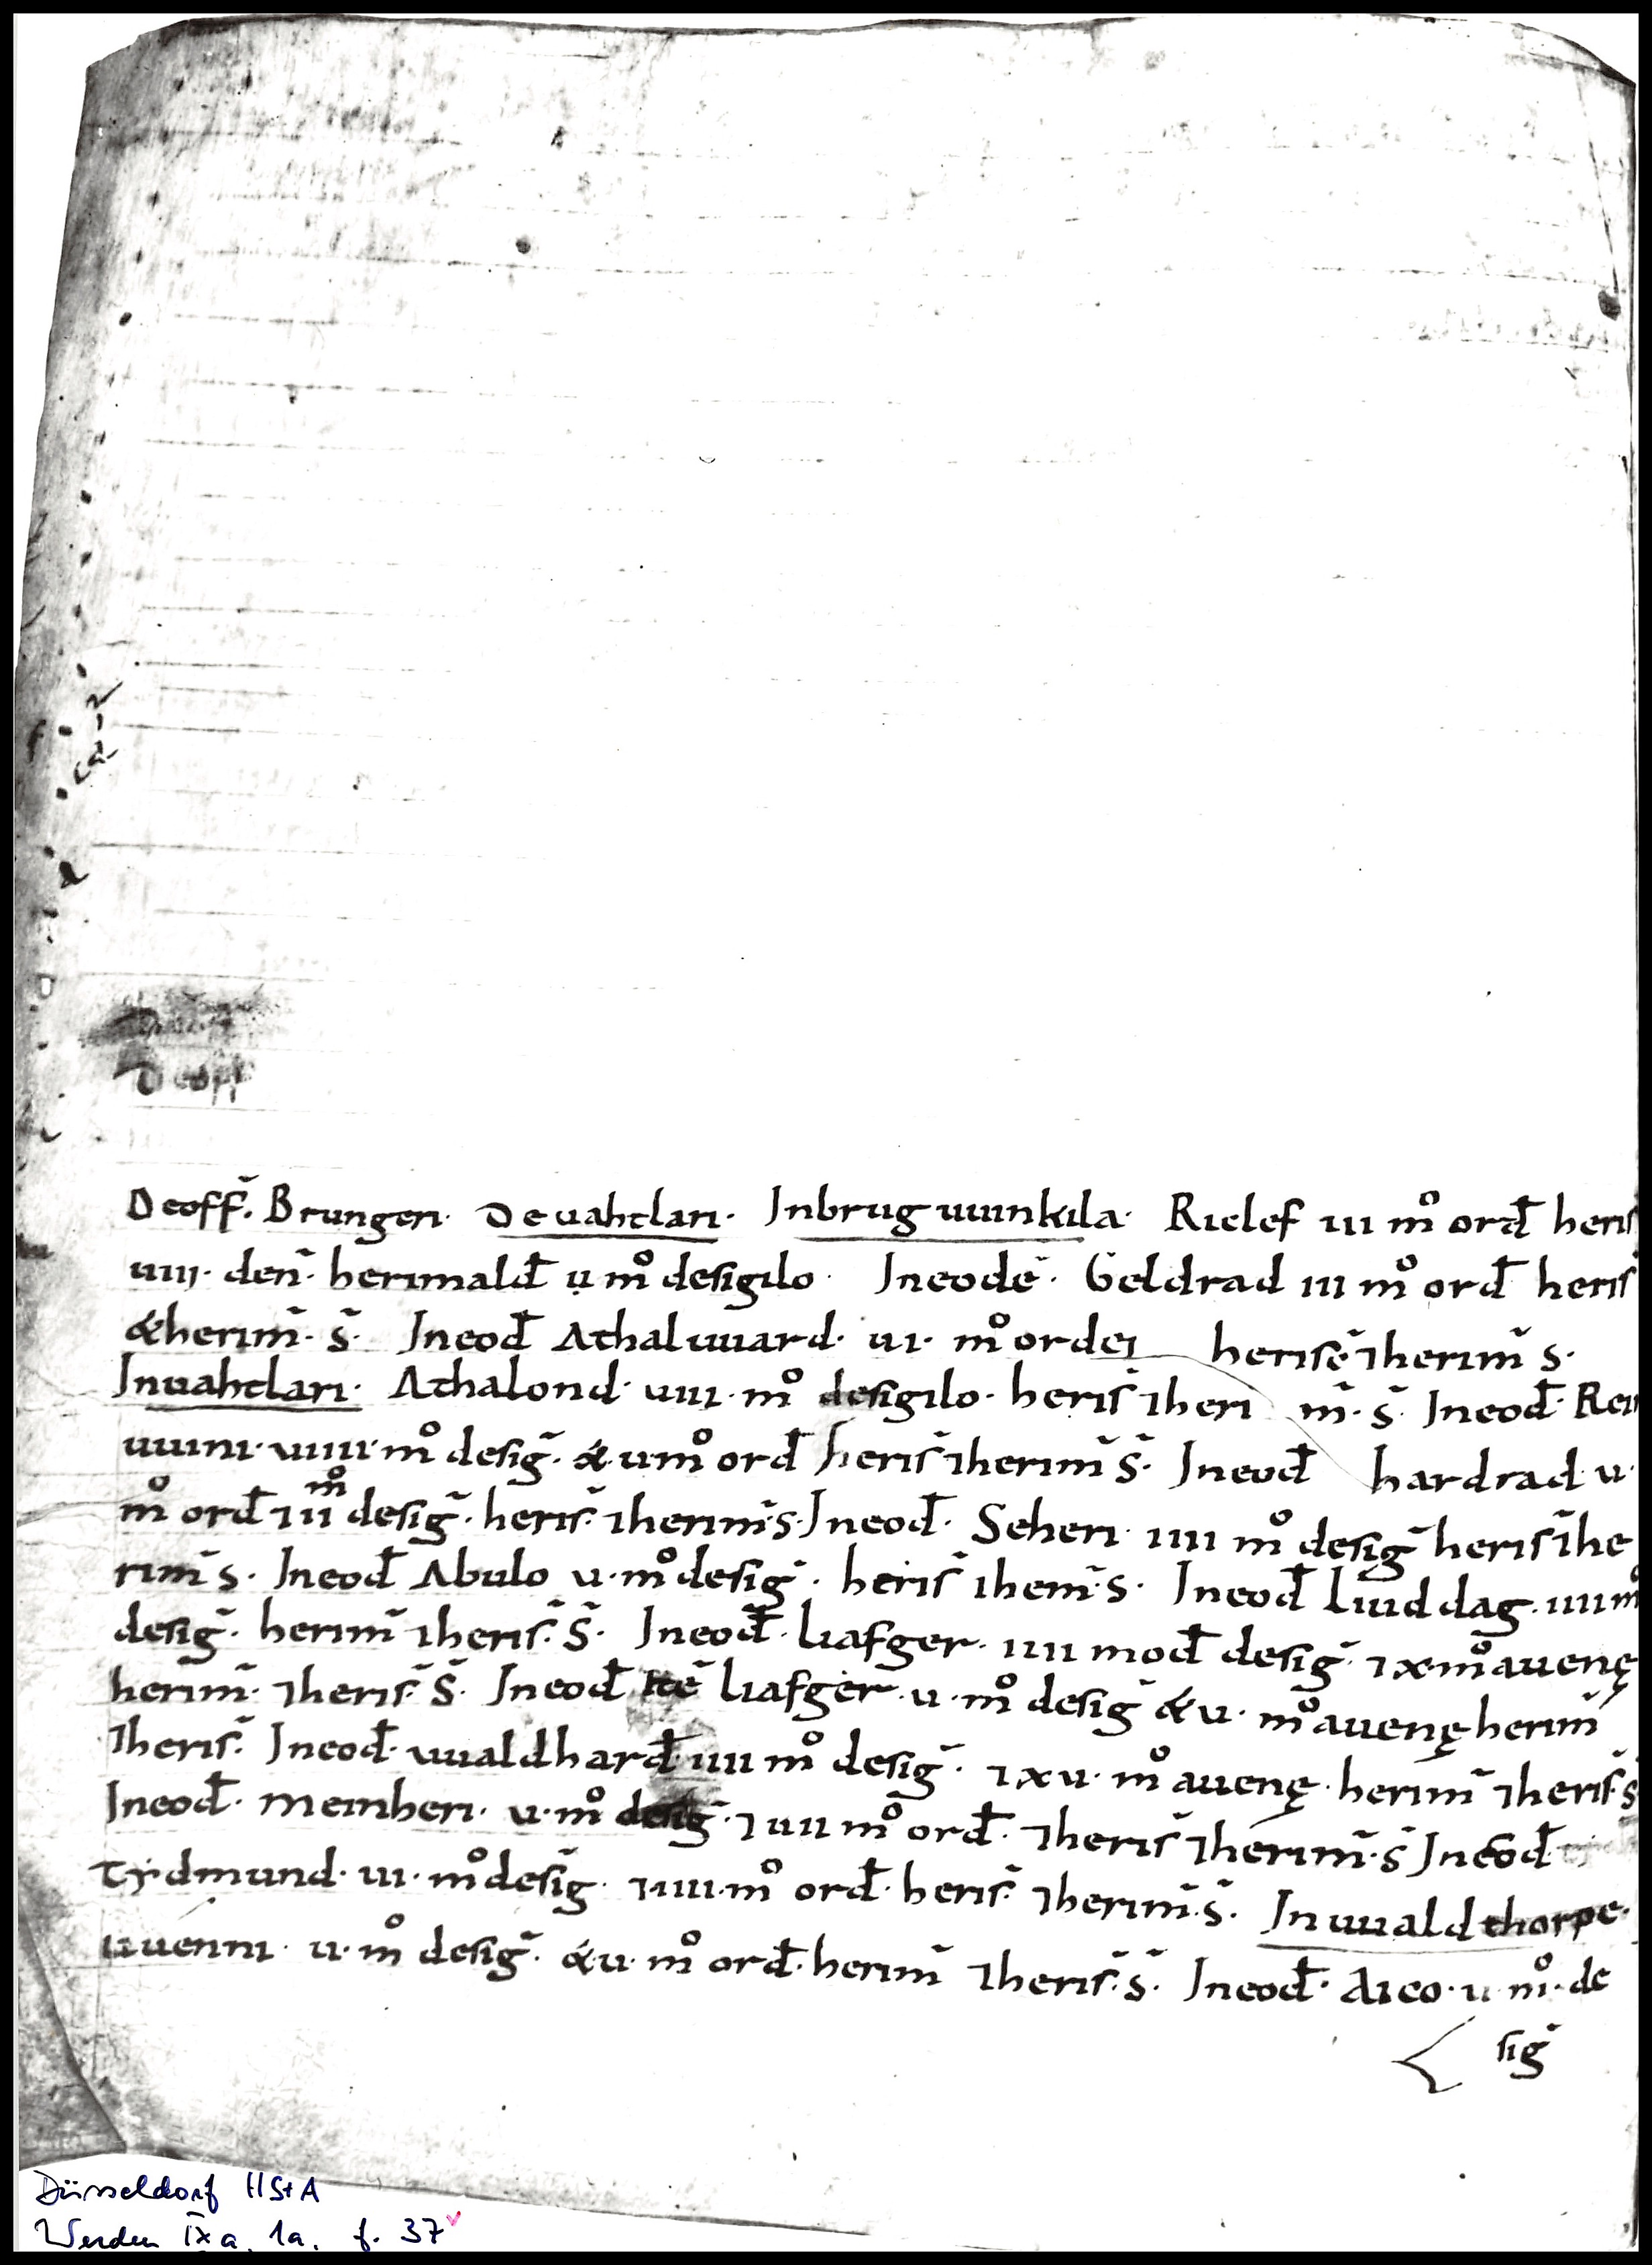 Deoff
Deoff̄. Brungeri. De uahtlari. Inbruguuinkila. Riclef iii m̊ ord̄ heris
uiiij. den̄. herimald̄ u m̊ desigilo. Ineodē. Geldrad iii m̊ ord̄ heris
&herim̄. s̄. Ineod̄ Athaluuard. ui. m̊ ordei herisc̄ ⁊herim̄ s.
Inuahtlari. Athalond. uiii. m̊ desigilo. heris̄ ⁊heri m̄. s̄. Ineod̄. Rei
uuini. uiiii. m̊ desiḡ. &. u m̊ ord̄ heris̄ ⁊herim̄ s̄. Ineod̄ hardrad u.
m̊ ord̄ ⁊iii m̊ desiḡ. heris̄. ⁊herim̄. s. Ineod̄. Seheri. iiii m̊ desiḡ heris̄ ⁊he
rim̄ s. Ineod̄ Abulo u. m̊ desiḡ. heris̄ ⁊hem̄. s. Ineod̄ Liuddag. iiii m̊
desiḡ. herim̄ ⁊heris̄. s̄. Ineod̄. Liafger. iiii mod̄ desiḡ. ⁊x. m̊ auenę
herim̄. ⁊heris̄. s̄. Ineod̄ Itē Liafger. u. m̊ desiḡ &u. m̊ auenę herim̄
⁊heris̄. Ineod̄. uualdhard̄. iiii m̊ desiḡ. ⁊xu. m̊ auenę. herim̄ ⁊heris̄. s̄
Ineod̄. Meinheri. u. m̊ desiḡ. ⁊iiii m̊ ord̄. ⁊heris̄ ⁊herim̄. s̄ Ineod̄
Tydmund. iii. m̊ desiḡ. ⁊iiii. m̊ ord̄. heris̄. ⁊herim̄. s̄. Inuualdthorpe.
uuenni. u. m̊ desiḡ. &u. m̊ ord̄. herim̄ ⁊heris̄. s̄. Ineod̄. Aico. u m̊. de
siḡ
Düsseldorf HStA
Werden IXa, 1a, f. 37